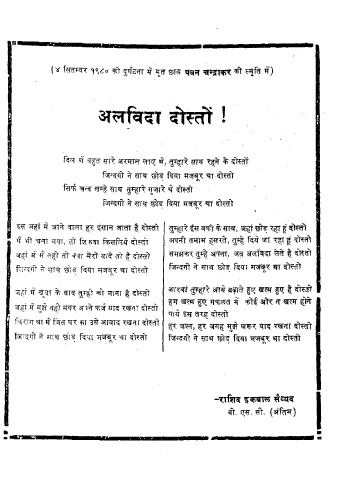 (४ सितम्बर १९८० को दुर्घटना में मृत छात्र पवन चन्द्राकर की स्मृति में)
अलविदा दोस्तों !
दिल में बहुत सारे अरमान लाए थे, तुम्हारे साथ रहने के दोस्तों
जिन्दगी ने साथ छोड़ दिया मजबूर था दोस्तो
सिर्फ चन्द लम्हे साथ तुम्हारे गुजारे थे दोस्तों
जिन्दगी ने साथ छोड़ दिया मजबूर था दोस्तो
इस जहां में आने वाला हर इंसान जाता है दोस्तो
मैं भी चला गया, तो किसलिये दोस्तो
जहां में मैं नहीं तो क्या मेरी यादें तो है दोस्तो
जिन्दगी ने साथ छोड़ दिया मजबूर था दोस्तो
जहां में खुदा के बाद तुम्ही को माना है दोस्तो
जहां में मुझे नहीं मगर अपने फर्ज याद रखना दोस्तो
चिराग था में जिस घर का उसे आबाद रखना दोस्तो
जिन्दगी ने साथ छोड़ दिया मजबूर था दोस्तो
तुम्हारे इस वर्षों के साथ, जहां छोड़ रहा हूं दोस्तो
अपनी तमाम हसरतें, तुम्हे दिये जा रहा हूं दोस्तो
समझकर तुम्हे अपना, अब अलविदा लेते है दोस्तो
जिन्दगी ने साथ छोड़ दिया मजबूर था दोस्तो
कारवां तुम्हारे आगे बढ़ाते हुए खत्म हुए है दोस्तो
हम खत्म हुए में कोई और न खत्म होंगे
पाये इस तरह दोस्तो
हर वक्त, हर जगह मुझे जरूर याद रखना दोस्तो
जिन्दगी ने साथ छोड़ दिया मजबूर था दोस्तो
-राशिद इकबाल सैय्यद
बी. एस. सी. (अंतिम)